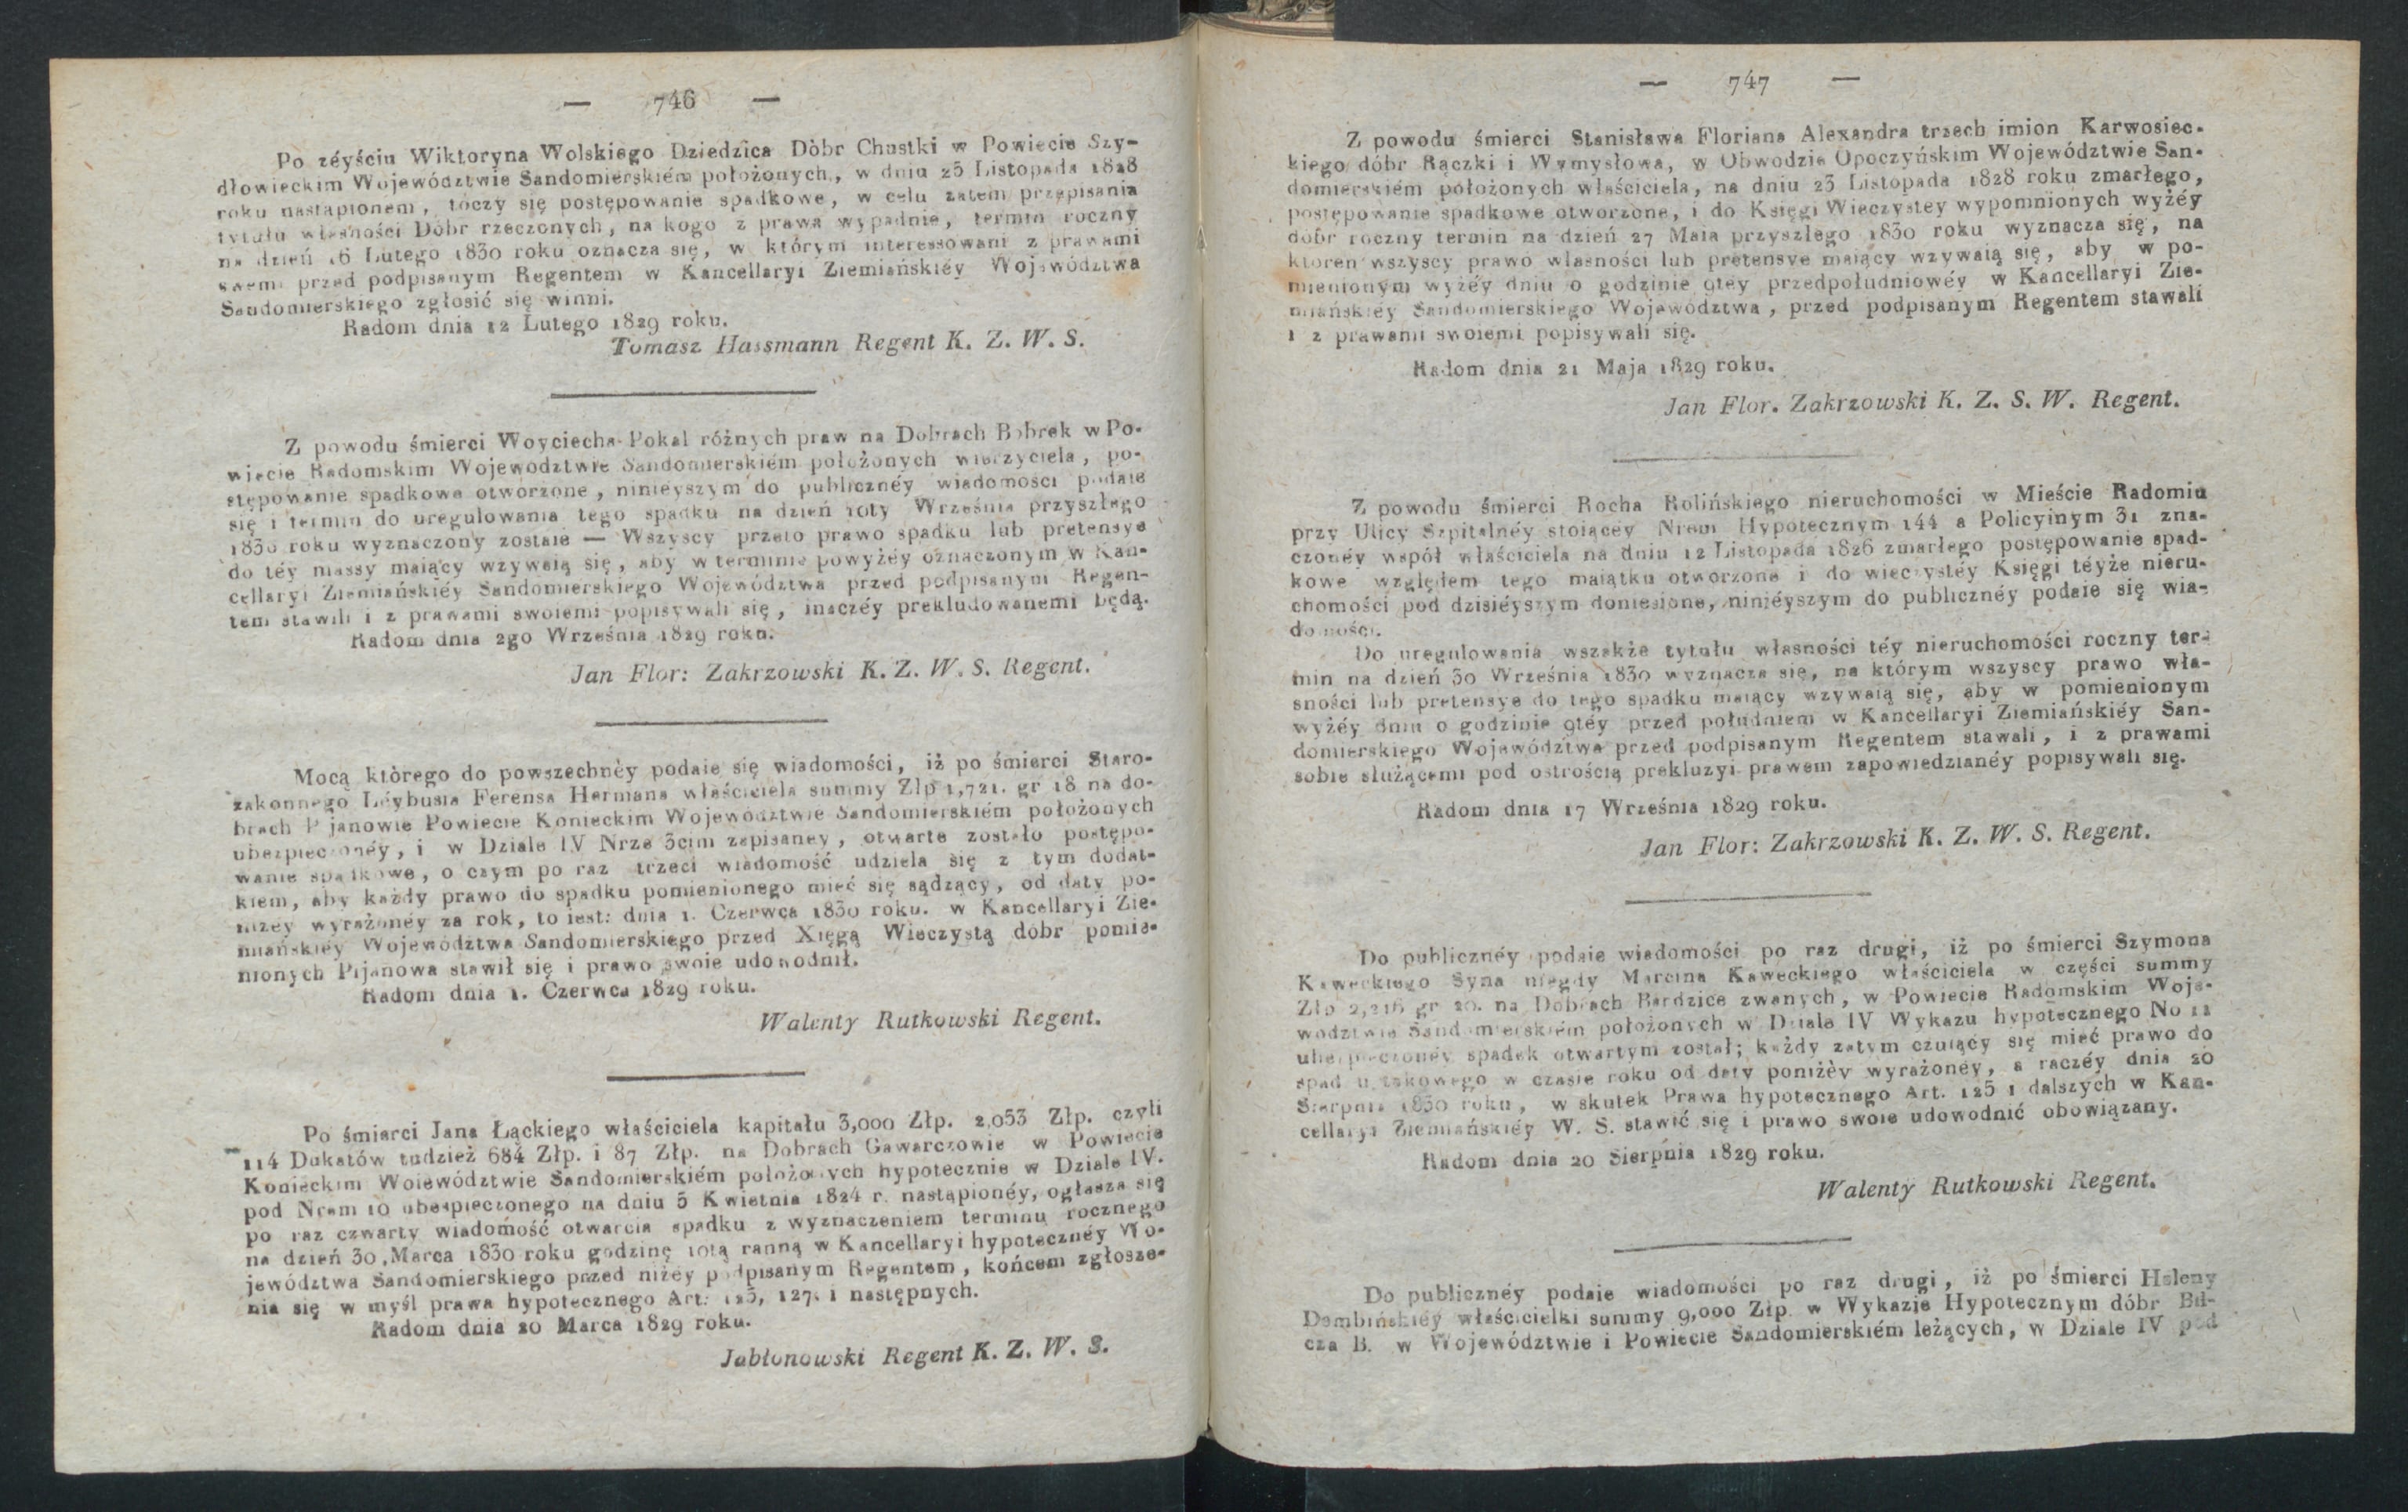 — 746 —
Po zéyściu Wiktoryna Wolskiego Dziedzica Dòbr Chustki w Powiecie Szy-
dłowieckim Województwie Sandomierskiém położonych, w dniu 25 Listopada 1828
roku nastąpionem, toczy się postępowanie spadkowe, w celu zatem przepisania
tytułu własności Dóbr rzeczonych, na kogo z prawa wypadnie, termin roczny
na dzień 16 Lutego 1830 roku oznacza się, w którym interessowani z prawami
swemi przed podpisanym Regentem w Kancellaryi Ziemiańskiéy Województwa
Sandomierskiego zgłosić się winni.
Radom dnia 12 Lutego 1829 roku.
Tomasz Hassmann Regent K. Z. W. S.
Z powodu śmierci Woyciecha Pokal różnych praw na Dobrach Bobrek w Po-
wiecie Radomskim Województwie Sandomierskiém położonych wierzyciela, po-
stępowanie spadkowe otworzone, ninieyszym do publicznéy wiadomości podaie
się i termin do uregulowania tego spadku na dzień 10ty Września przyszłego
1830 roku wyznaczony zostaie — Wszyscy przeto prawo spadku lub pretensye
do téy massy maiący wzywaią się, aby w terminie powyżéy oznaczonym w Kan-
cellaryi Ziemiańskiéy Sandomierskiego Województwa przed podpisanym Regen-
tem stawili i z prawami swoiemi popisywali się, inaczéy prekludowanemi będą.
Radom dnia 2go Września 1829 roku.
Jan Flor: Zakrzowski K. Z. W. S. Regent.
Mocą ktòrego do powszechnèy podaie się wiadomości, iż po śmierci Staro-
zakonnego Léybusia Ferensa Hermana właściciela summy Złp 1,721. gr 18 na do-
brach Pijanowie Powiecie Konieckim Województwie Sandomierskiém położonych
ubezpieczonéy, i w Dziale IV Nrze 3cim zapisaney, otwarte zostało postępo-
wanie spadkowe, o czym po raz trzeci wiadomość udziela się z tym dodat-
kiem, aby każdy prawo do spadku pomienionego mieć się sądzący, od daty po-
niżey wyrażonéy za rok, to iest: dnia 1. Czerwca 1830 roku. w Kancellaryi Zie-
miańskiéy Województwa Sandomierskiego przed Xięgą Wieczystą dóbr pomie-
nionych Pijanowa stawił się i prawo swoie udowodnił.
Radom dnia 1. Czerwca 1829 roku.
Walenty Rutkowski Regent.
Po śmierci Jana Łąckiego właściciela kapitału 3,000 Złp. 2,053 Złp. czyli
114 Dukatów tudzież 684 Złp. i 87 Złp. na Dobrach Gawarczowie w Powiecie
Konieckim Woiewództwie Sandomierskiém położonych hypotecznie w Dziale IV.
pod Nrem 10 ubezpieczonego na dniu 5 Kwietnia 1824 r. nastąpionéy, ogłasza się
po raz czwarty wiadomość otwarcia spadku z wyznaczeniem terminu rocznego
na dzień 30 Marca 1830 roku godzinę 10tą ranną w Kancellaryi hypotecznéy Wo-
jewództwa Sandomierskiego przed niżéy podpisanym Regentem, końcem zgłosze-
nia się w myśl prawa hypotecznego Art. 125, 127. i następnych.
Radom dnia 20 Marca 1829 roku.
Jabłonowski Regent K. Z. W. S.
— 747 —
Z powodu śmierci Stanisława Floriana Alexandra trzech imion Karwosiec-
kiego dóbr Rączki i Wymysłowa, w Obwodzie Opoczyńskim Województwie San-
domierskiém położonych właściciela, na dniu 23 Listopada 1828 roku zmarłego,
postępowanie spadkowe otworzone, i do Księgi Wieczystey wypomnionych wyżéy
dóbr roczny termin na dzień 27 Maia przyszłego 1830 roku wyznacza się, na
ktoren wszyscy prawo własności lub pretensye maiący wzywaią się, aby w po-
mienionym wyżéy dniu o godzinie 9téy przedpołudniowéy w Kancellaryi Zie-
miańskiéy Sandomierskiego Województwa, przed podpisanym Regentem stawali
i z prawami swoiemi popisywali się.
Radom dnia 21 Maja 1829 roku.
Jan Flor. Zakrzowski K. Z. S. W. Regent.
Z powodu śmierci Rocha Rolińskiego nieruchomości w Mieście Radomiu
przy Ulicy Szpitalnéy stoiącéy Nrem Hypotecznym 144 a Policyinym 31 zna-
czonéy wspól właściciela na dniu 12 Listopada 1826 zmarłego postępowanie spad-
kowe względem tego maiątku otworzone i do wieczystéy Księgi téyże nieru-
chomości pod dzisiéyszym doniesione, niniéyszym do publicznéy podaie się wia-
domości.
Do uregulowania wszakże tytułu własności téy nieruchomości roczny ter-
min na dzień 30 Września 1830 wyznacza się, na którym wszyscy prawo wła-
sności lub pretensye do tego spadku maiący wzywaią się, aby w pomienionym
wyżéy dniu o godzinie 9téy przed południem w Kancellaryi Ziemiańskiéy San-
domierskiego Województwa przed podpisanym Regentem stawali, i z prawami
sobie służącemi pod ostrością prekluzyi prawem zapowiedzianéy popisywali się.
Radom dnia 17 Września 1829 roku.
Jan Flor: Zakrzowski K. Z. W. S. Regent.
Do publicznéy podaie wiadomości po raz drugi, iż po śmierci Szymona
Kaweckiego Syna niegdy Marcina Kaweckiego właściciela w części summy
Złp 2,216 gr 20. na Dobrach Bardzice zwanych, w Powiecie Radomskim Woje-
wództwie Sandomierskiém położonych w Dziale IV Wykazu hypotecznego No 11
ubezpieczonéy spadek otwartym został; każdy zatym czuiący się mieć prawo do
spadku takowego w czasie roku od daty poniżèy wyrażonéy, a raczéy dnia 20
Sierpnia 1830 roku, w skutek Prawa hypotecznego Art. 125 i dalszych w Kan-
cellaryi Ziemiańskiéy W. S. stawić się i prawo swoie udowodnić obowiązany.
Radom dnia 20 Sierpnia 1829 roku.
Walenty Rutkowski Regent.
Do publicznéy podaie wiadomości po raz drugi, iż po śmierci Heleny
Dembińskiéy właścicielki summy 9,000 Złp. w Wykazie Hypotecznym dóbr
cza B. w Województwie i Powiecie Sandomierskiém leżących, w Dziale IV pod